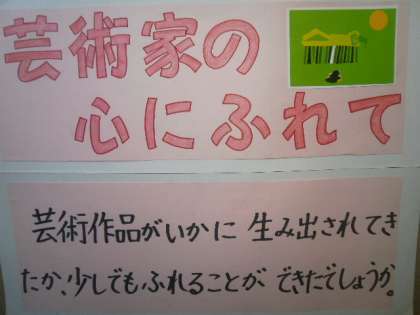 芸術家の
心にふれて
芸術作品がいかに 生み出されてき
たか、少しでもふれることが できたでしょうか。